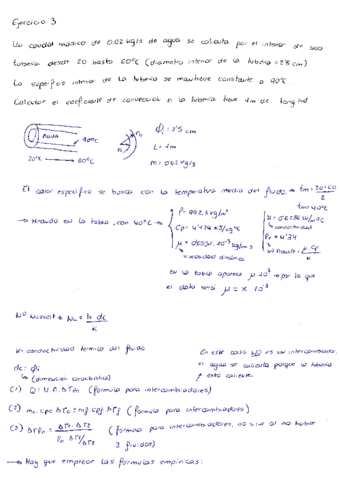 Ejercicio 3
Un caudal másico de 0.02 kg/s de agua se calienta por el interior de una
tubería desde 20 hasta 60ºC (diámetro interior de la tubería = 2'5 cm)
La superficie interior de la tubería se mantiene constante a 90ºC.
Calcular el coeficiente de convección si la tubería tiene 1m de longitud.
AGUA
90ºC
20ºC → 60ºC
Φi = 2'5 cm
L = 1m
m = 0.02 kg/s
El calor específico se busca con la temperatura media del fluido → tm = 20+60 / 2
tm = 40ºC
→ Mirando en la tabla, con 40ºC →
ρ = 992.3 kg/m³
Cp = 4'174 KJ/kgºC
→ viscosidad dinámica
K = 0.6286 W/mºC
↳ conductividad
Pr = 4'34
Nº Prandtl = μ·Cp / K
En la tabla aparece μ·10³ → por lo que
el dato será μ = x·10⁻³
Nº Nusselt → Nu = h·dc / K
K = conductividad térmica del fluido
dc = Φi
↳ (dimensión característica)
En este caso NO es un intercambiador,
el agua se calienta porque la tubería
está caliente.
(1) Q = U·A·ΔTm (fórmula para intercambiadores)
(2) mc·cpc·ΔTc = mf·cpf·ΔTf (fórmula para intercambiadores)
(3) (fórmula para intercambiadores, no sirve al no haber
2 fluidos)
→ Hay que emplear las fórmulas empíricas: